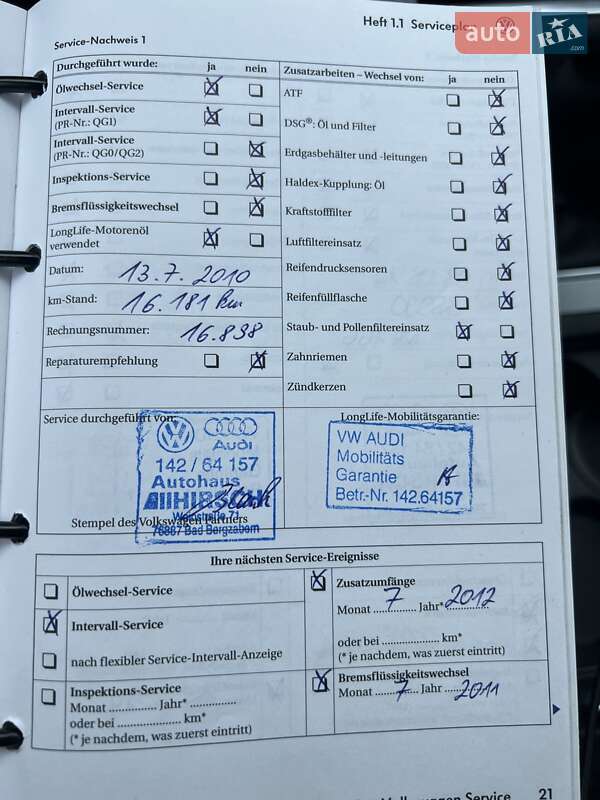 Heft 1.1 Serviceplan
auto RIA.com
Service-Nachweis 1
Durchgeführt wurde: ja nein
Ölwechsel-Service
Intervall-Service
(PR-Nr.: QG1)
Intervall-Service
(PR-Nr.: QG0/QG2)
Inspektions-Service
Bremsflüssigkeitswechsel
LongLife-Motorenöl
verwendet
Datum: 13.7.2010
km-Stand: 16.181 km
Rechnungsnummer: 16.838
Reparaturempfehlung
Zusatzarbeiten – Wechsel von: ja nein
ATF
DSG®: Öl und Filter
Erdgasbehälter und -leitungen
Haldex-Kupplung: Öl
Kraftstofffilter
Luftfiltereinsatz
Reifendrucksensoren
Reifenfüllflasche
Staub- und Pollenfiltereinsatz
Zahnriemen
Zündkerzen
Service durchgeführt von:
Audi
142 / 64 157
Autohaus
HIRSCH
Weinstraße 71
76887 Bad Bergzabern
Stempel des Volkswagen Partners
LongLife-Mobilitätsgarantie:
VW AUDI
Mobilitäts
Garantie
Betr.-Nr. 142.64157
Ihre nächsten Service-Ereignisse
Ölwechsel-Service
Intervall-Service
nach flexibler Service-Intervall-Anzeige
Inspektions-Service
Monat ............... Jahr* ...............
oder bei .................... km*
(* je nachdem, was zuerst eintritt)
Zusatzumfänge
Monat 7 Jahr* 2012
oder bei .................... km*
(* je nachdem, was zuerst eintritt)
Bremsflüssigkeitswechsel
Monat 7 Jahr 2011
Volkswagen Service 21